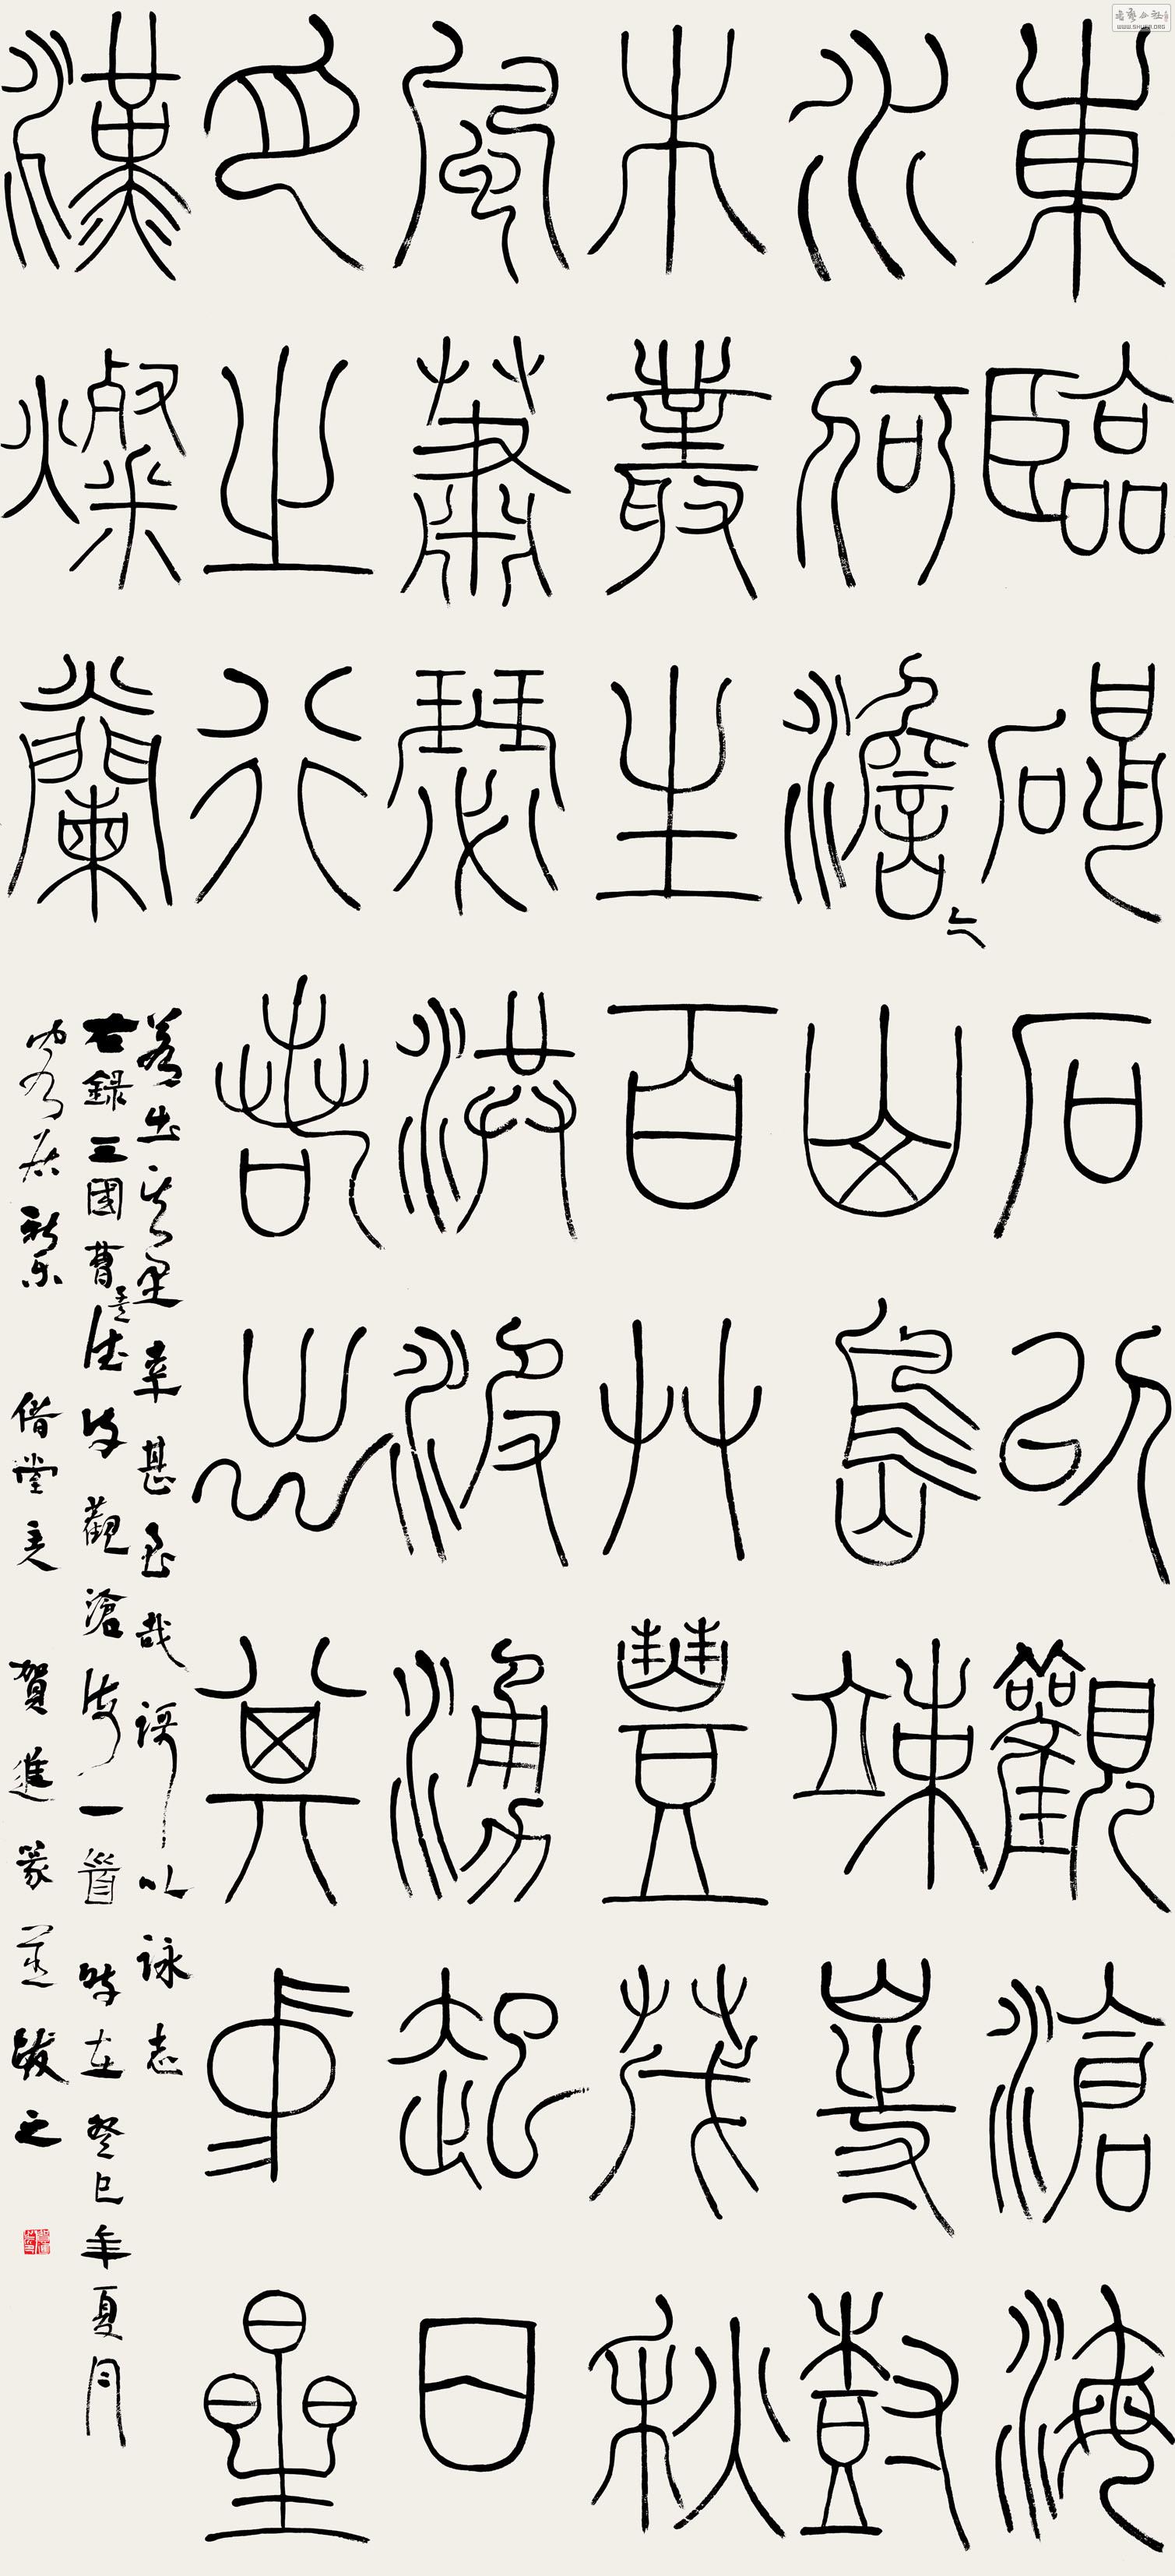 東臨碣石以觀滄海
水何澹〻山島竦峙樹
木叢生百艸豐茂秋
風蕭瑟洪波湧起日
月之行若出其中星
漢燦蘭
若出其里幸甚至哉謌以詠志
右錄三國曹孟德詩觀滄海一首時在癸巳年夏月
居 借堂主 賀進篆並跋之
WWW.SHUFA.ORG